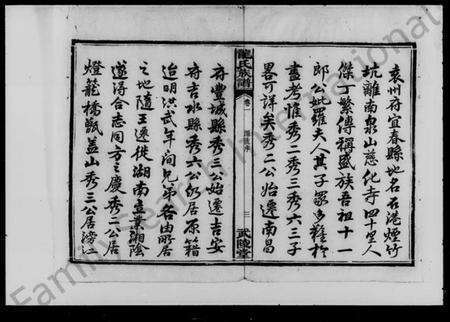 袁州府宜春縣地名石港煙竹
坑離南泉山慈化寺四十里人
傑丁繁傳稱盛族吾祖十一
郎公妣羅夫人其子眾多難於
盡考惟秀二秀三秀六三子
畧可詳矣秀二公始遷南昌
龍氏族譜
卷一
三
武陵堂
府豐城縣秀三公始遷吉安
府吉水縣秀六公仍居原籍
迨明洪武年间兄弟各由所居
之地隨王遷徙湖南立業湘陰
遂得合志同方之慶秀二公居
燈籠橋甑蓋山秀三公居滂江
Family Search International